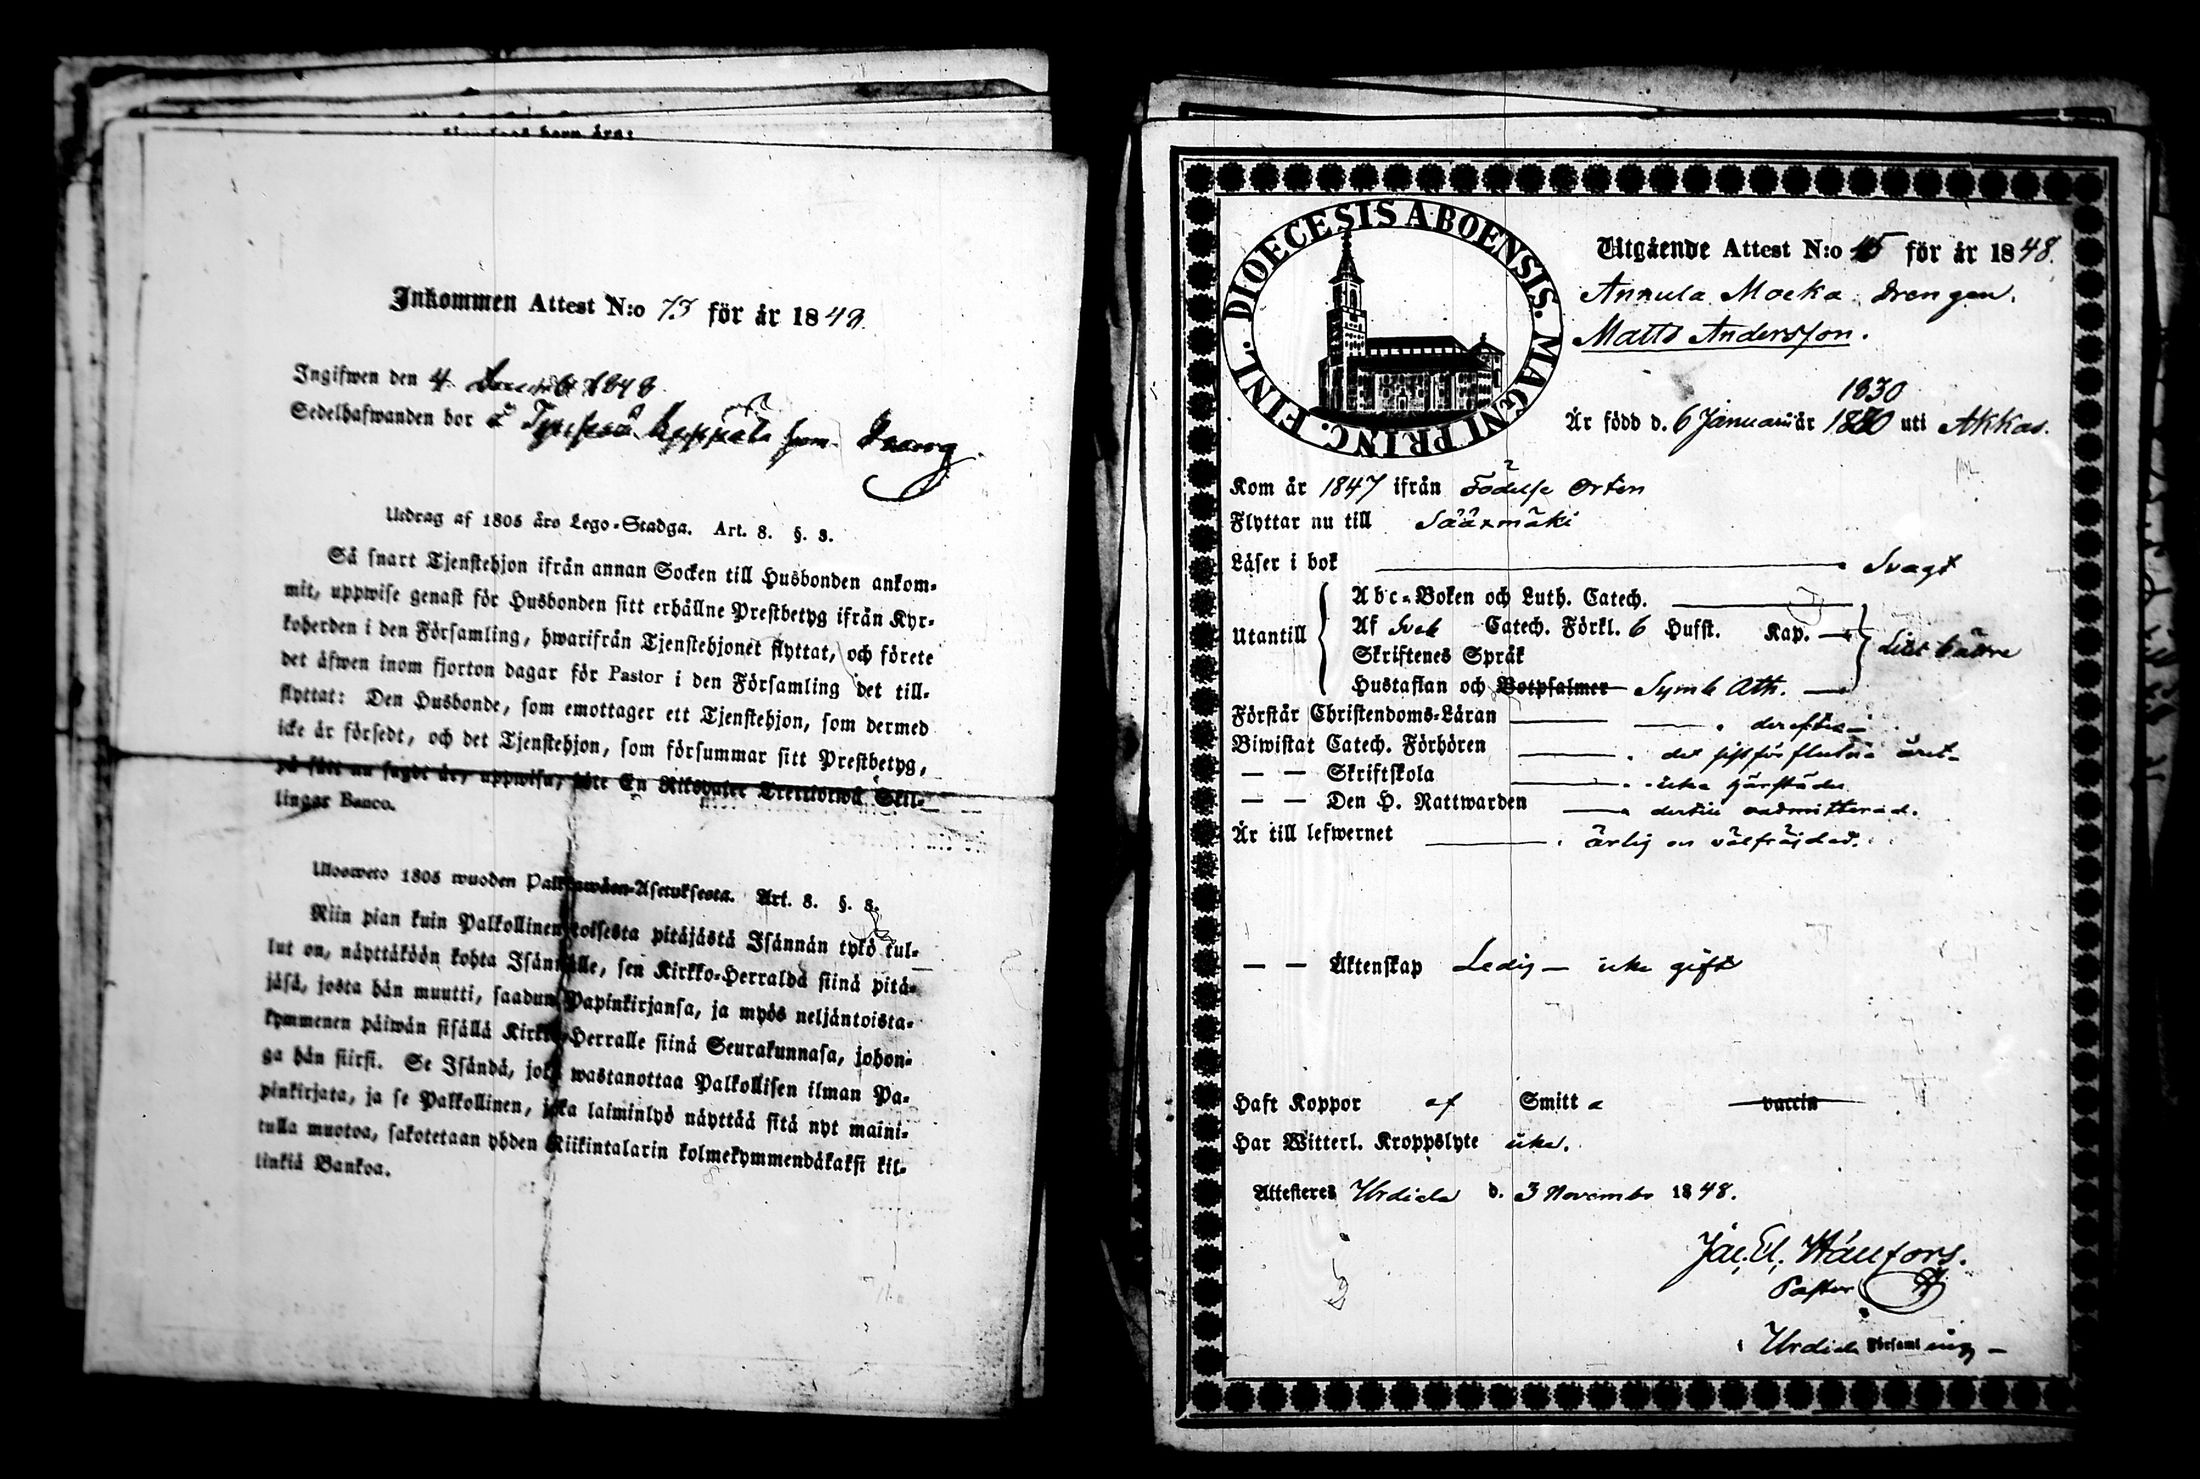 Inkommen Attest N:o 73 för år 1849
Ingifwen den 4 1848
Sedelhafwanden bor som Dräng
Utdrag af 1805 års Lego-Stadga. Art. 8. §. 3.
Så snart Tjenstehjon ifrån annan Socken till Husbonden ankom-
mit, uppwise genast för Husbonden sitt erhållne Prestbetyg ifrån Kyr-
koherden i den Församling, hwarifrån Tjenstehjonet flyttat, och förete
det äfwen inom fjorton dagar för Pastor i den Församling det till-
flyttat: Den Husbonde, som emottager ett Tjenstehjon, som dermed
icke är försedt, och det Tjenstehjon, som försummar sitt Prestbetyg,
på sätt nu sagdt är, uppwisa, böte En Riksdaler Trettiotwå Skil-
lingar Banco.
Ulosweto 1805 wuoden Palkkawäen-Asetuksesta. Art. 8. §. 3.
Niin pian kuin Palkollinen toisesta pitäjästä Isännän tykö tul-
lut on, näyttäköön kohta Isännälle, sen Kirkko-Herralda siinä pitä-
jäsä, josta hän muutti, saadun Papinkirjansa, ja myös neljäntoista-
kymmenen päiwän sisällä Kirkko-Herralle siinä Seurakunnasa, johon-
ga hän siirsi. Se Isändä, joka wastanottaa Palkollisen ilman Pa-
pinkirjata, ja se Palkollinen, joka laiminlyö näyttää sitä nyt maini-
tulla muotoa, sakotetaan yhden Riikintalarin kolmekymmendäkaksi kil-
linkiä Bankoa.
DIOECESIS ABOENSIS. MAGNI PRINC. FINL.
Utgående Attest N:o 45 för år 1848.
Annula Moeka drengen.
Matts Andersson.
1830
Är född d. 6 Januarii år 1820 uti Akkas.
Kom år 1847 ifrån Födelse Orten
Flyttar nu till Sääxmäki
Läser i bok Svagt
Abc-Boken och Luth. Catech.
Utantill
Af Sveb Catech. Förkl. 6 Hufst. Kap.
Litet bättre
Skriftenes Språk
Hustaflan och Botpsalmer Symb. Ath.
Förstår Christendoms-Läran derefter
Biwistat Catech. Förhören det sistförflutna året
— — Skriftskola icke härstädes
— — Den H. Nattwarden dertill oadmitterad.
Är till lefwernet ärlig och välfräjdad.
— — Äktenskap Ledig — icke gift
Haft Koppor af Smitta vaccin
Har Witterl. Kroppslyte icke.
Attesteres Urdiala d. 3 Novembr 1848.
Jac. El. Wänfors.
Pastor
i Urdiala Församling